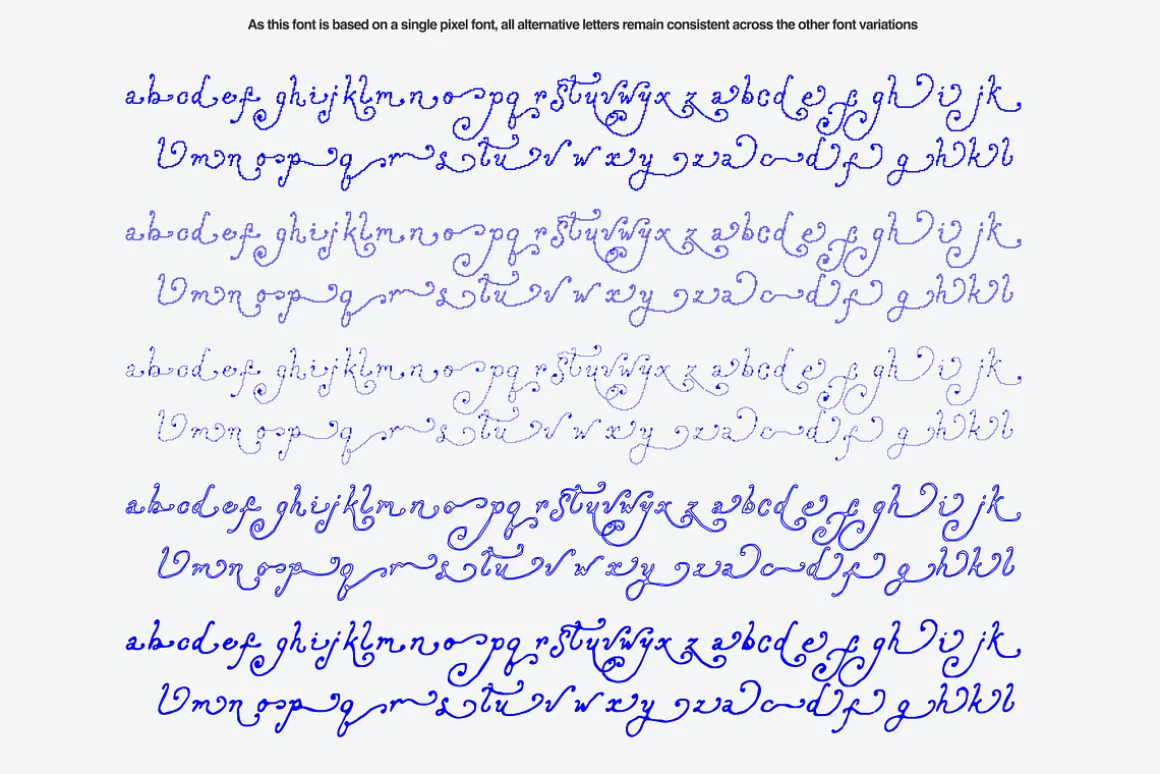 As this font is based on a single pixel font, all alternative letters remain consistent across the other font variations
abcdef ghijklmnopqrstuvwyxz abcdefghijk
lmnopqrstuvwxyzacdfghkl
abcdef ghijklmnopqrstuvwyxz abcdefghijk
lmnopqrstuvwxyzacdfghkl
abcdef ghijklmnopqrstuvwyxz abcdefghijk
lmnopqrstuvwxyzacdfghkl
abcdef ghijklmnopqrstuvwyxz abcdefghijk
lmnopqrstuvwxyzacdfghkl
abcdef ghijklmnopqrstuvwyxz abcdefghijk
lmnopqrstuvwxyzacdfghkl